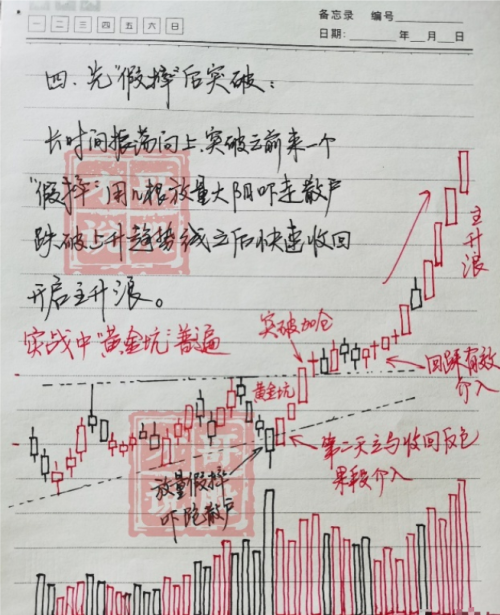 备忘录 编号
一 二 三 四 五 六 日
日期: 年 月 日
四、先“假摔”后突破:
长时间振荡向上、突破之前来一个
“假摔”用几根放量大阴吓走散户
跌破上升趋势线之后快速收回
开启主升浪。
实战中“黄金坑”普遍
突破加仓
主升浪
黄金坑
回踩有效
介入
第二天立马收回反包
果断介入
放量假摔
吓跑散户